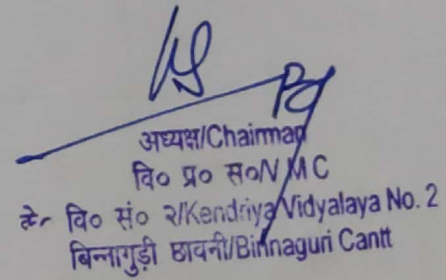 अध्यक्ष/Chairman
वि० प्र० स०/V M C
के० वि० सं० २/Kendriya Vidyalaya No. 2
बिन्नागुड़ी छावनी/Binnaguri Cantt